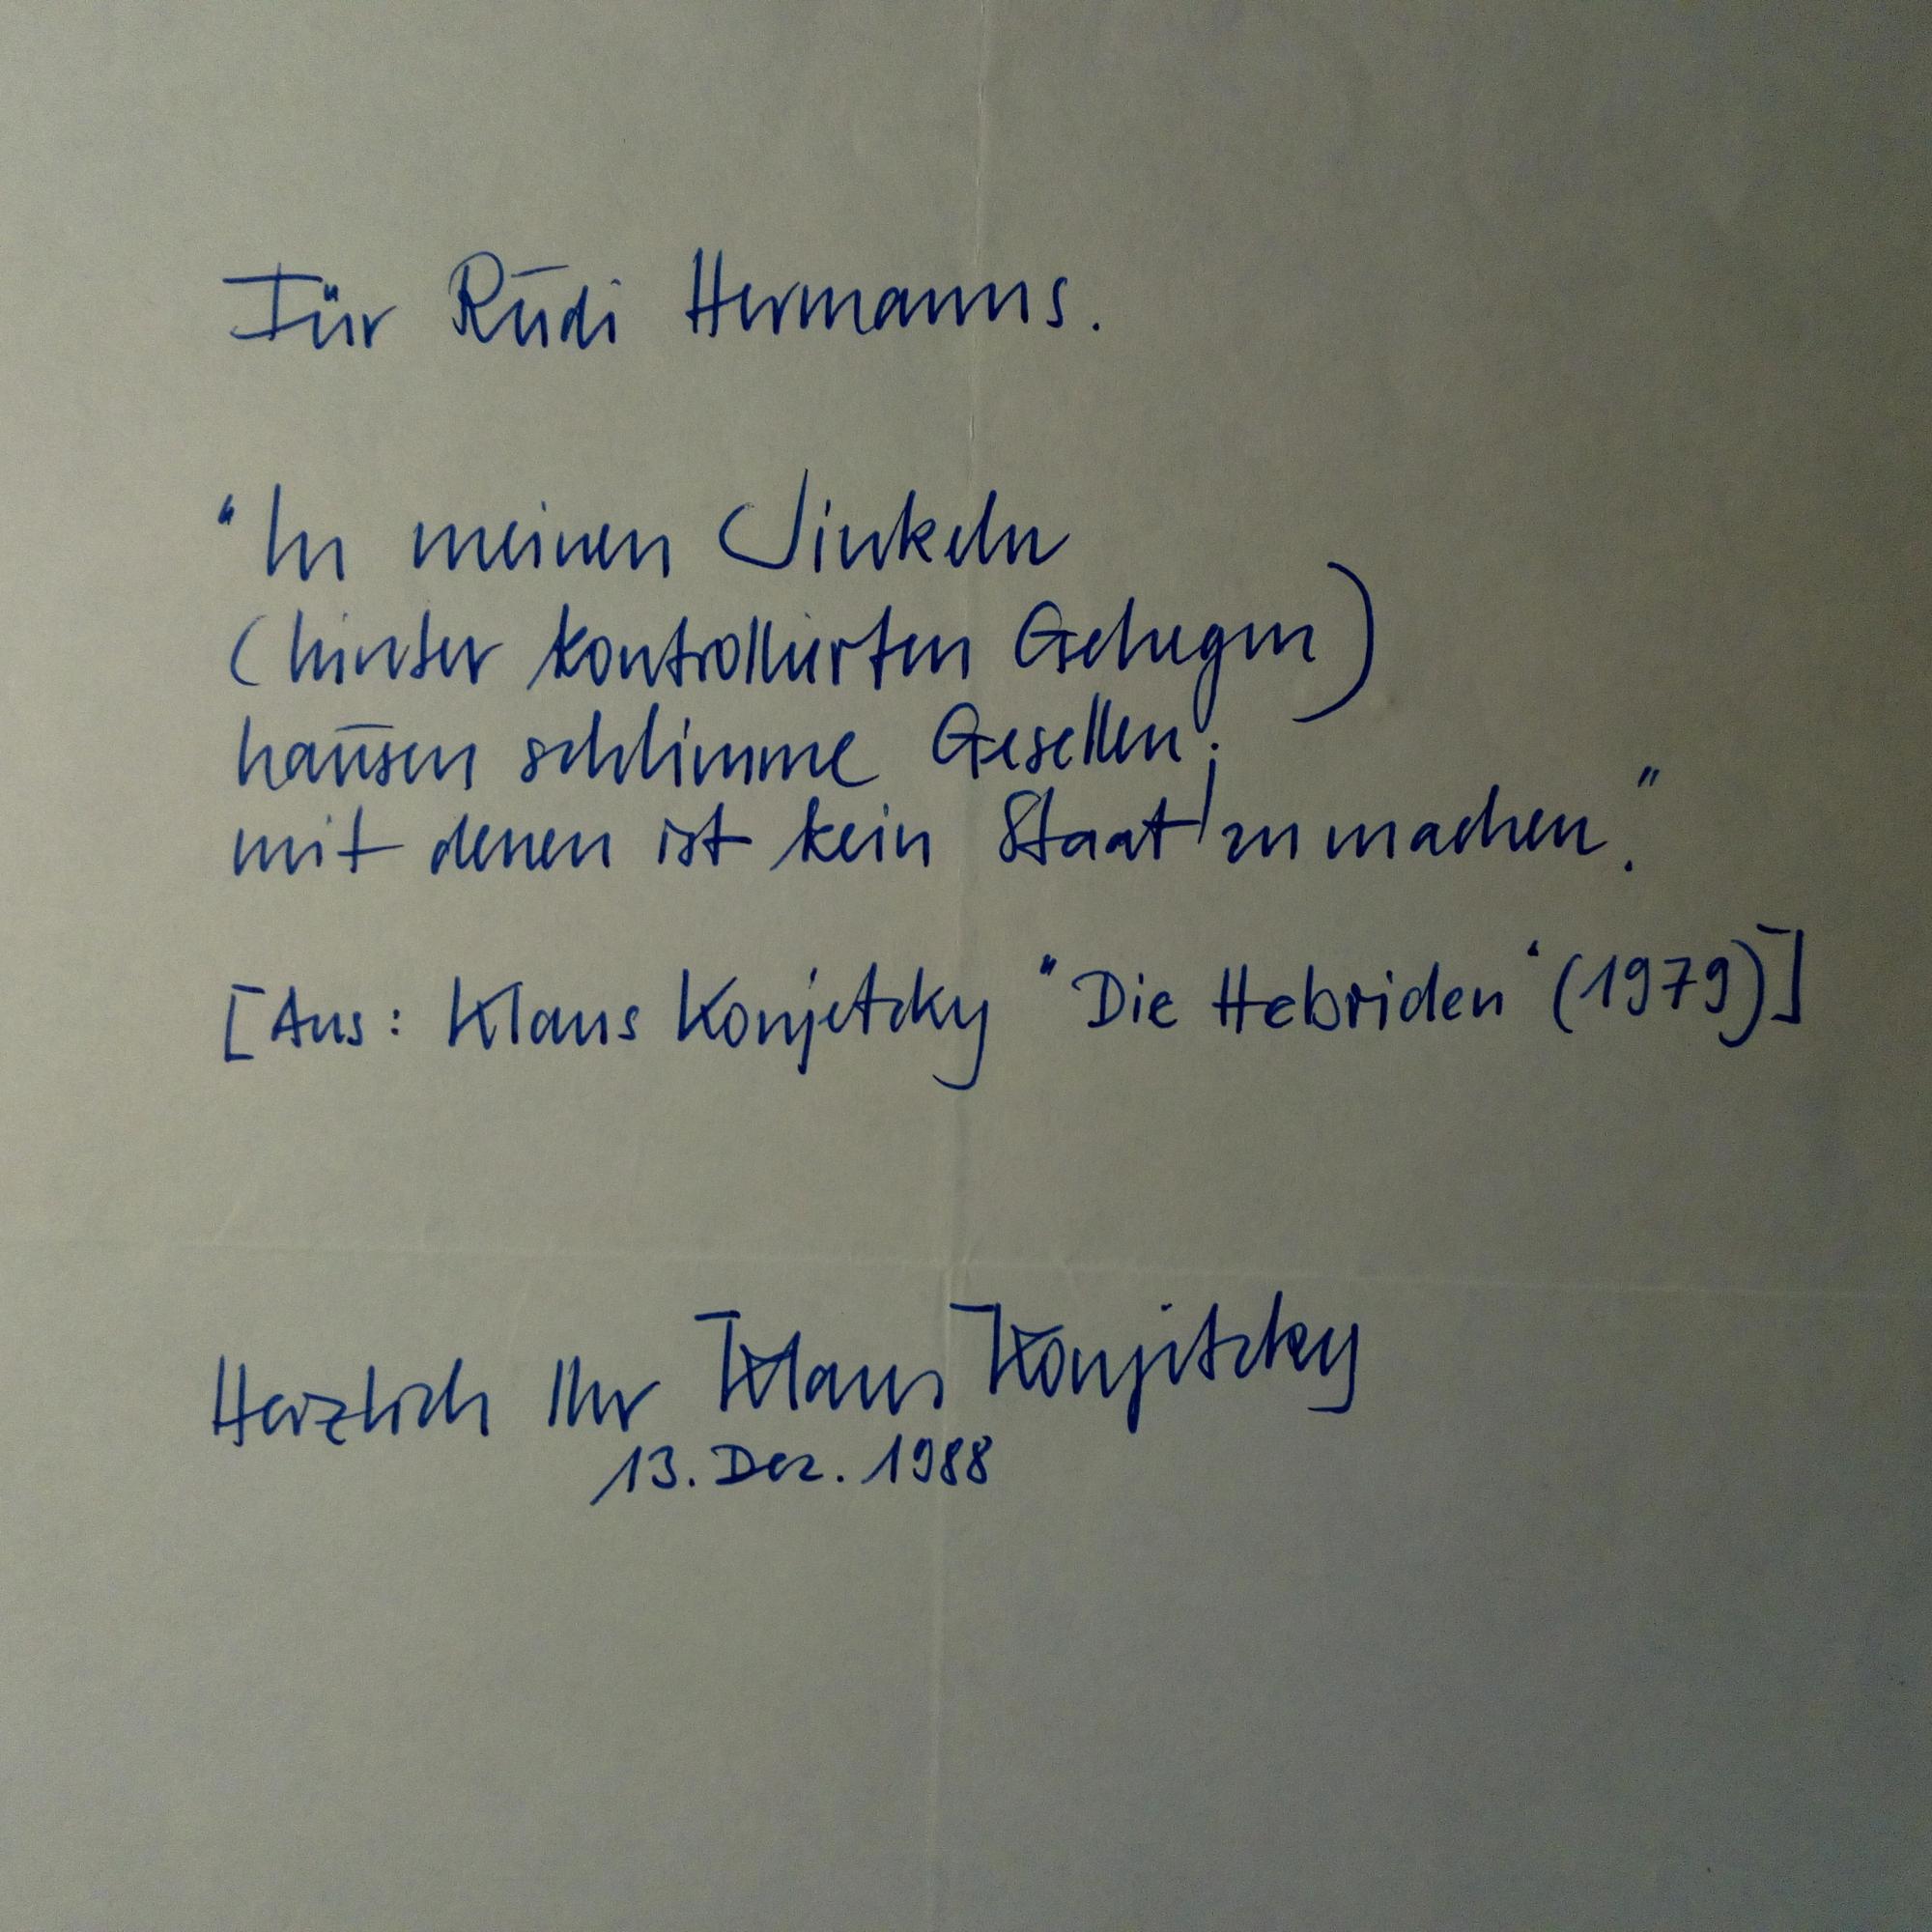 Für Rudi Hermanns.
"In meinen Winkeln
(hinter kontrollierten Gehegen)
hausen schlimme Gesellen:
mit denen ist kein Staat zu machen."
[Aus: Klaus Konjetzky "Die Hebriden" (1979)]
Herzlich Ihr Klaus Konjetzky
13. Dez. 1988